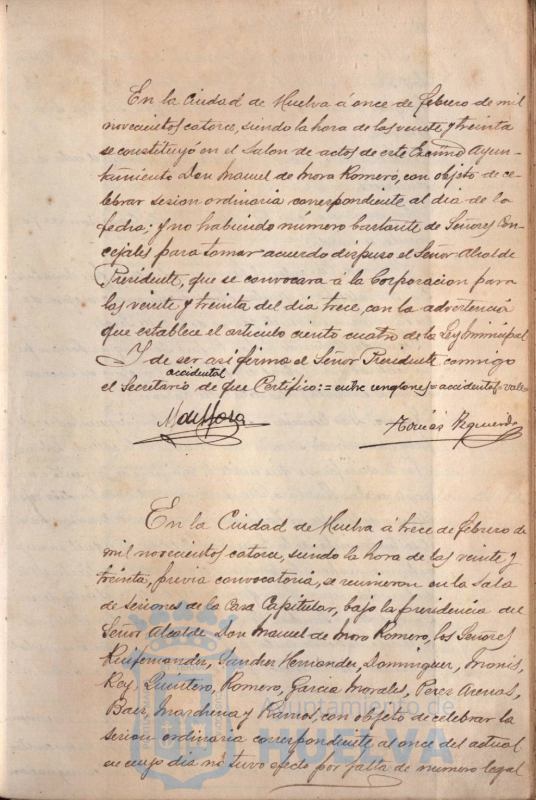 En la Ciudad de Huelva á once de febrero de mil
novecientos catorce, siendo la hora de las veinte y treinta
se constituyó en el Salon de actos de este Excmo Ayun-
tamiento Don Manuel de Mora Romero, con objeto de ce-
lebrar sesion ordinaria correspondiente al dia de la
fecha; y no habiendo número bastante de Señores Con-
cejales para tomar acuerdo dispuso el Señor Alcalde
Presidente, que se convocara á la Corporacion para
las veinte y treinta del dia trece, con la advertencia
que establece el articulo ciento cuatro de la Ley Municipal
Y de ser asi firma el Señor Presidente conmigo
accidental
el Secretario de que Certifico:=entre renglones=accidental=vale
M de Mora
Tomás Yzquierdo
En la Ciudad de Huelva á trece de febrero de
mil novecientos catorce, siendo la hora de las veinte y
treinta, previa convocatoria, se reunieron en la Sala
de Sesiones de la Casa Capitular, bajo la presidencia del
Señor Alcalde Don Manuel de Mora Romero, los Señores
Ruifernandez, Sanchez Hernandez, Dominguez, Monis,
Rey, Quintero, Romero, Garcia Morales, Perez Arenas,
Baez, Marchena y Ramos, con objeto de celebrar la
sesion ordinaria correspondiente al once del actual
en cuyo dia no tuvo efecto por falta de numero legal
Ayuntamiento de
HUELVA